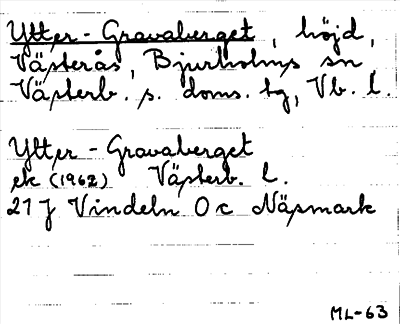 Ytter-Gravaberget, höjd,
Västerås, Bjurholms sn
Västerb. s. doms. tg, Vb. l.
Ytter-Gravaberget
ek (1962) Västerb. l.
21 J Vindeln 0 c Näsmark
ML-63